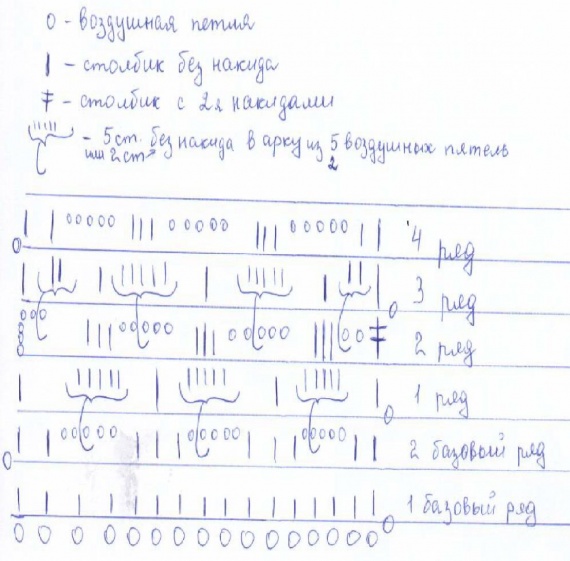 0 - воздушная петля
| - столбик без накида
‡ - столбик с 2я накидами
- 5 ст. без накида в арку из 5 воздушных пятель
или 2 ст 2
4 ряд
3 ряд
2 ряд
1 ряд
2 базовый ряд
1 базовый ряд